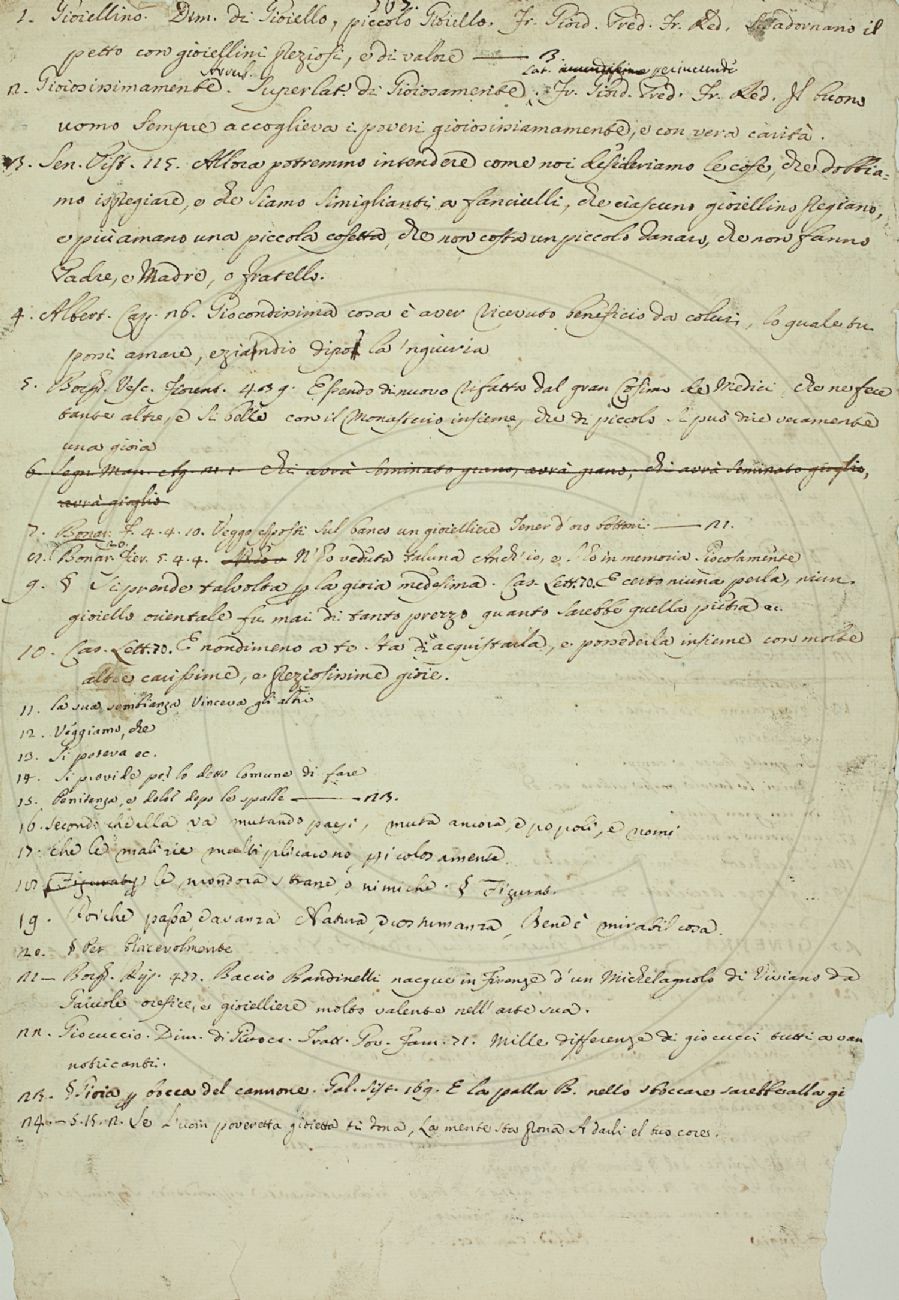 707.
1. Gioiellino. Dim. di Gioiello, piccolo Gioiello. Fr. Giord. Pred. Fr. Red. S'adornano il
petto con gioiellini preziosi, e di valore —— B
2. Gioiosissimamente. Avverb. Superlat. di Gioiosamente. Lat. perjucunde. Fr. Giord. Pred. Fr. Red. Il buono
uomo sempre accoglieva i poveri gioiosissimamente, e con vera carità.
3. Sen. Pist. 115. Allora potremmo intendere come noi desideriamo le cose, che dobbia-
mo ispregiare, e che siamo simiglianti a fanciulli, che ciascuno gioiellino pregiano,
e più amano una piccola cosetta, che non costa un piccolo danaro, che non fanno
Padre, e Madre, o fratello.
4. Albert. Cap. 26. Giocondissima cosa è aver ricevuto beneficio da colui, lo quale tu
possi amare, eziandio dipo' la 'ngiuria
5. Borgh. Vesc. Fiorent. 439. Essendo di nuovo rifatta dal gran Cosimo de Medici che ne fece
tante altre, e sì belle con il Monasterio insieme, che di piccolo si può dire veramente
una gioia
6. Segn. Man. chi avrà seminato grano, avrà grano, chi avrà seminato gioglio,
avrà gioglio
7. Bonar. F. 4. 4. 10. Veggo esposti sul banco un gioielliere Tener d'oro bottoni —— 21.
8. Bonar. Fier. 5. 4. 4. N'ho veduta taluna Anch'io, e l'ho in memoria Giocosamente
9. § Si prende talvolta per la gioia medesima. Cas. Lett. 70. E certo niuna perla, niun
gioiello orientale fu mai di tanto prezzo quanto sarebbe quella pietra ec.
10. Cas. Lett. 70. E nondimeno a te sta di acquistarla, e possederla insieme con molte
altre carissime, e preziosissime gioie.
11. la sua sembianza vinceva gli altri
12. Veggiamo, che
13. Si poteva ec.
14. Si provide per lo detto comune di fare
15. Penitenza, e dolor dopo le spalle —— 23.
16. Secondo ch'ella va mutando paesi, muta ancora, e popoli, e nomi
17. che le malizie multiplicarono pericolosamente
18. Figurat. per le mondora strane, o nimiche. § Figurat.
19. Poiche passa davanza Natura, e costumanza, Ben è mirabil cosa.
20. § Per Piacevolmente
21 — Borgh. Rip. 477. Baccio Bandinelli nacque in Firenze d'un Michelagnolo di Viviano da
Gaiuole orefice, e gioielliere molto valente nell'arte sua.
22. Giocuccio. Dim. di Giuoco. Tratt. Gov. Fam. 71. Mille differenze di giocucci tutti a van
nutricanti.
23. § Gioia per bocca del cannone. Gal. Sist. 169. E la palla B. nello sboccare sarebbe alla gi
24. — S. 15. 2. Se l'uom poveretta gioietta ti dona, La mente sta prona A darli el tuo core.